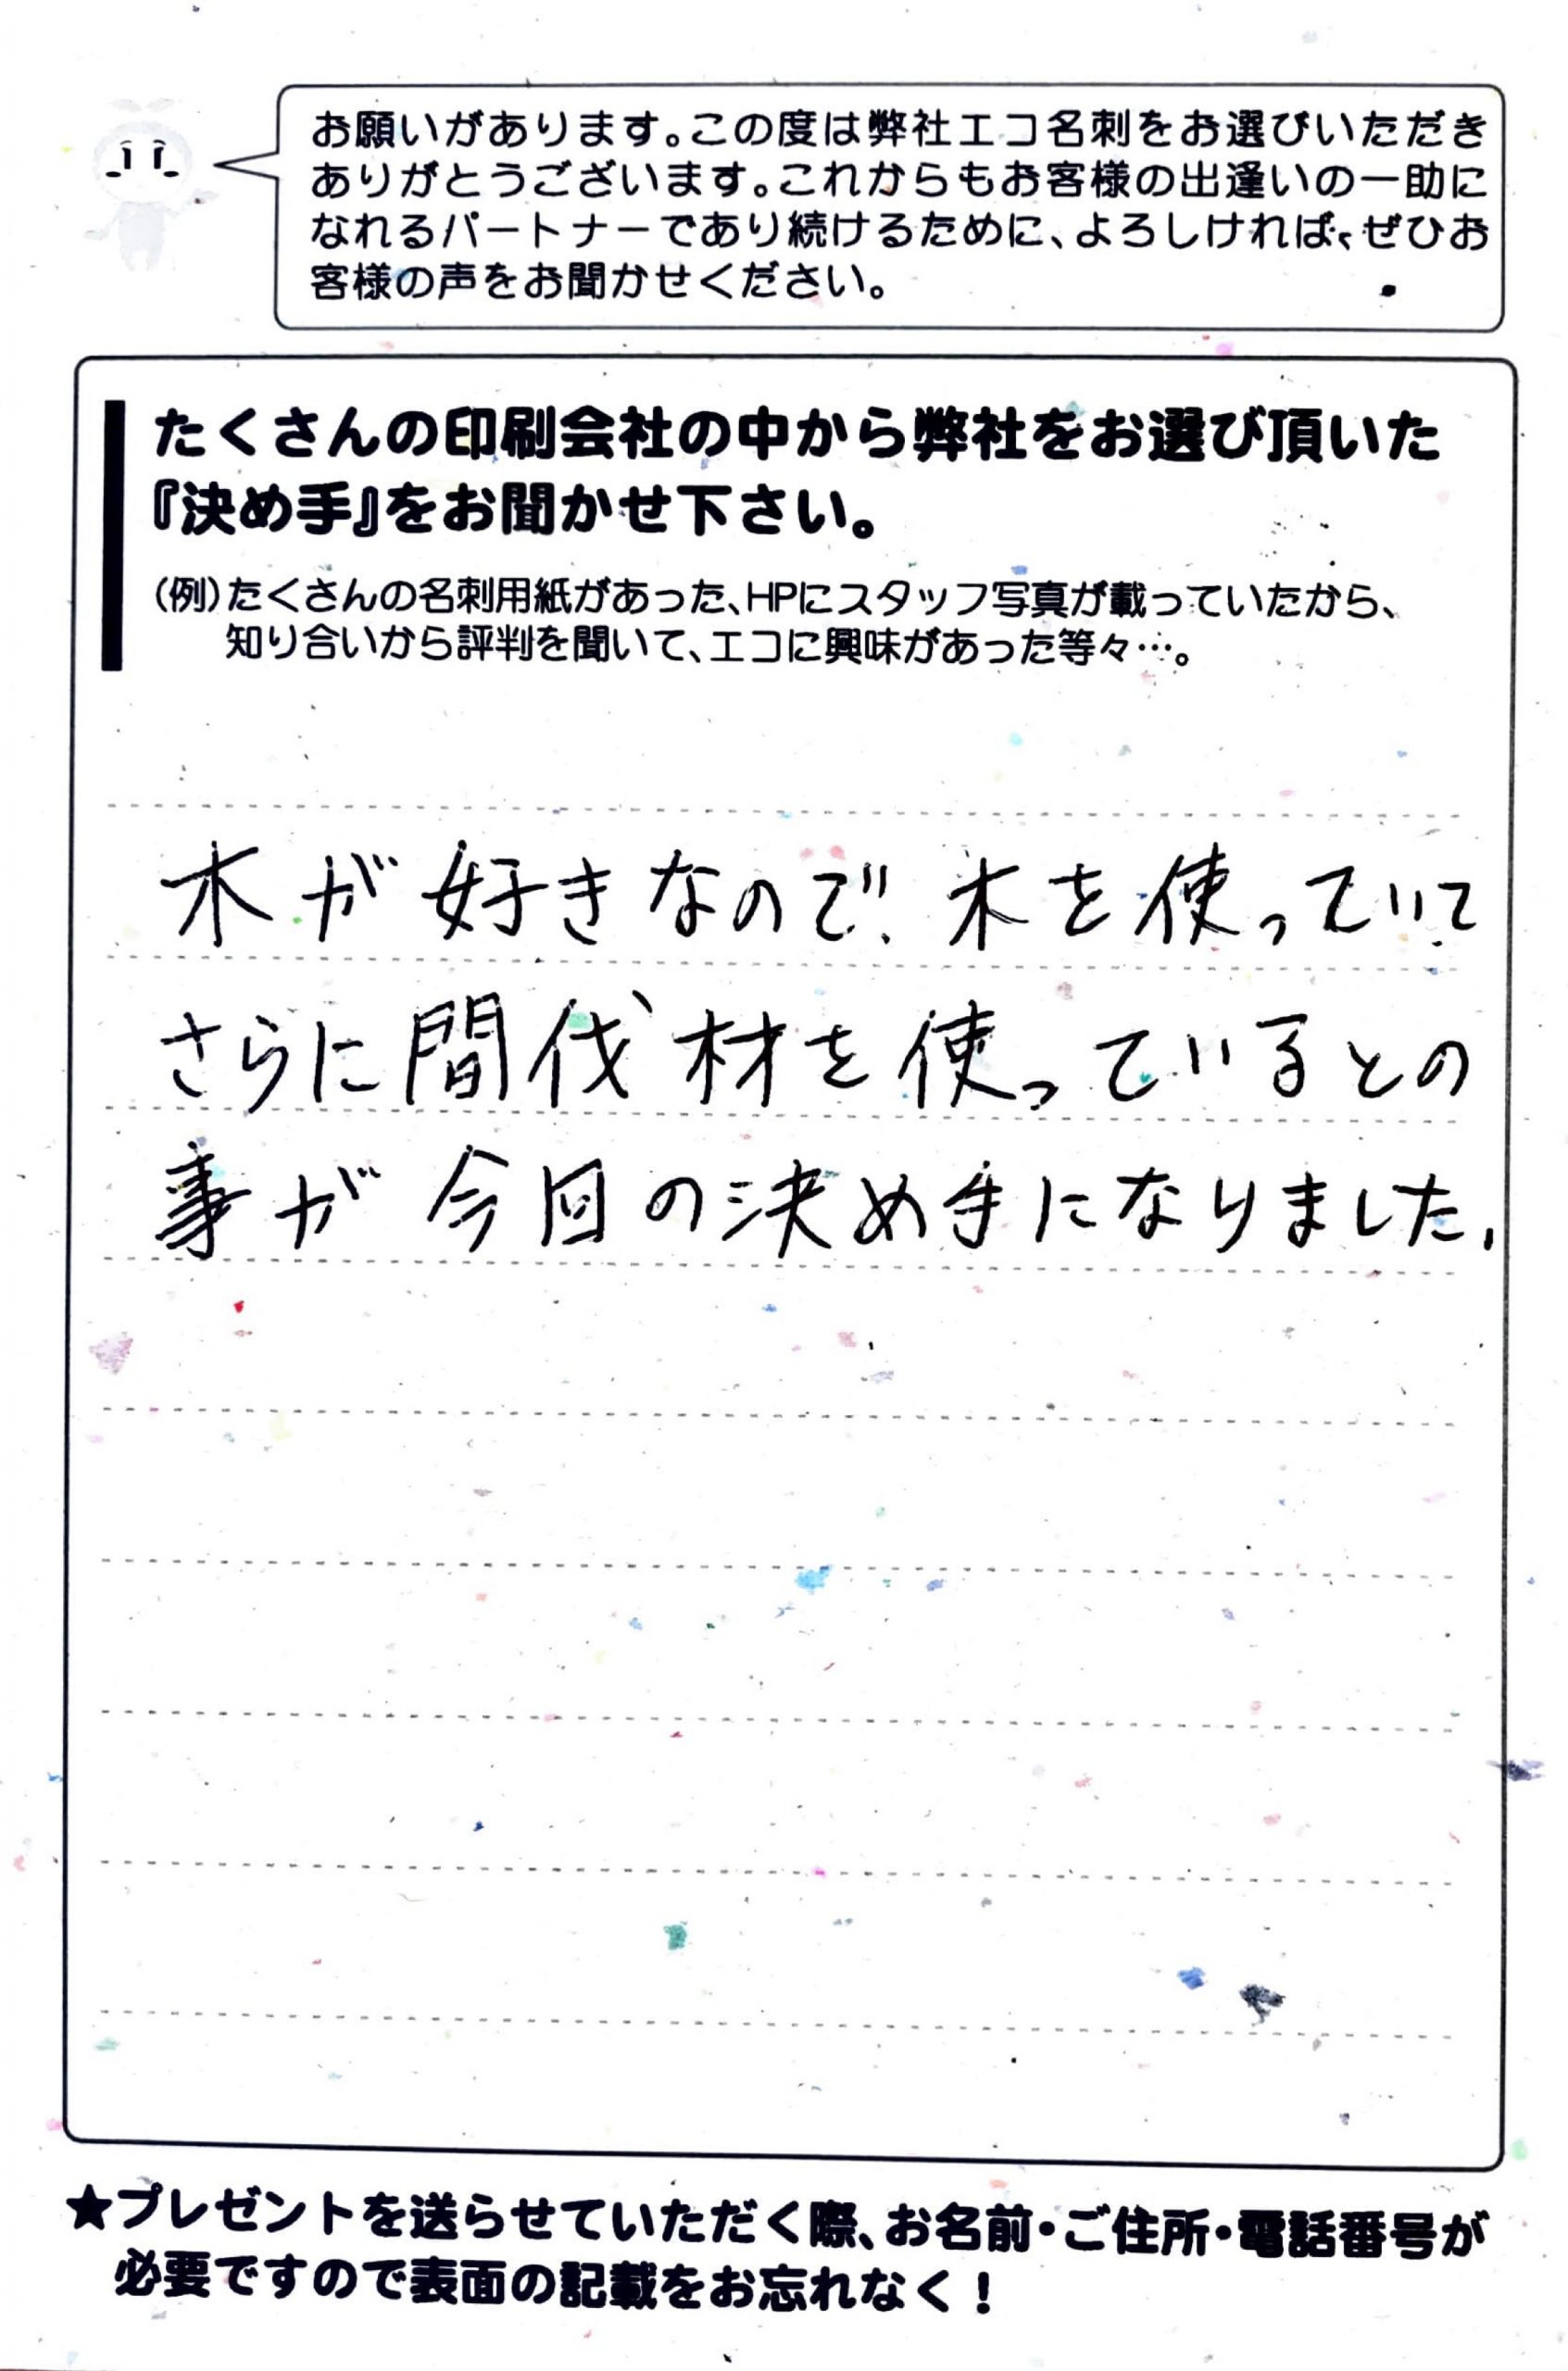 お願いがあります。この度は弊社エコ名刺をお選びいただき
ありがとうございます。これからもお客様の出逢いの一助に
なれるパートナーであり続けるために、よろしければ、ぜひお
客様の声をお聞かせください。
たくさんの印刷会社の中から弊社をお選び頂いた
『決め手』をお聞かせ下さい。
(例)たくさんの名刺用紙があった、HPにスタッフ写真が載っていたから、
知り合いから評判を聞いて、エコに興味があった等々…。
木が好きなので、木を使っていて
さらに間伐材を使っているとの
事が今回の決め手になりました、
★プレゼントを送らせていただく際、お名前・ご住所・電話番号が
必要ですので表面の記載をお忘れなく!